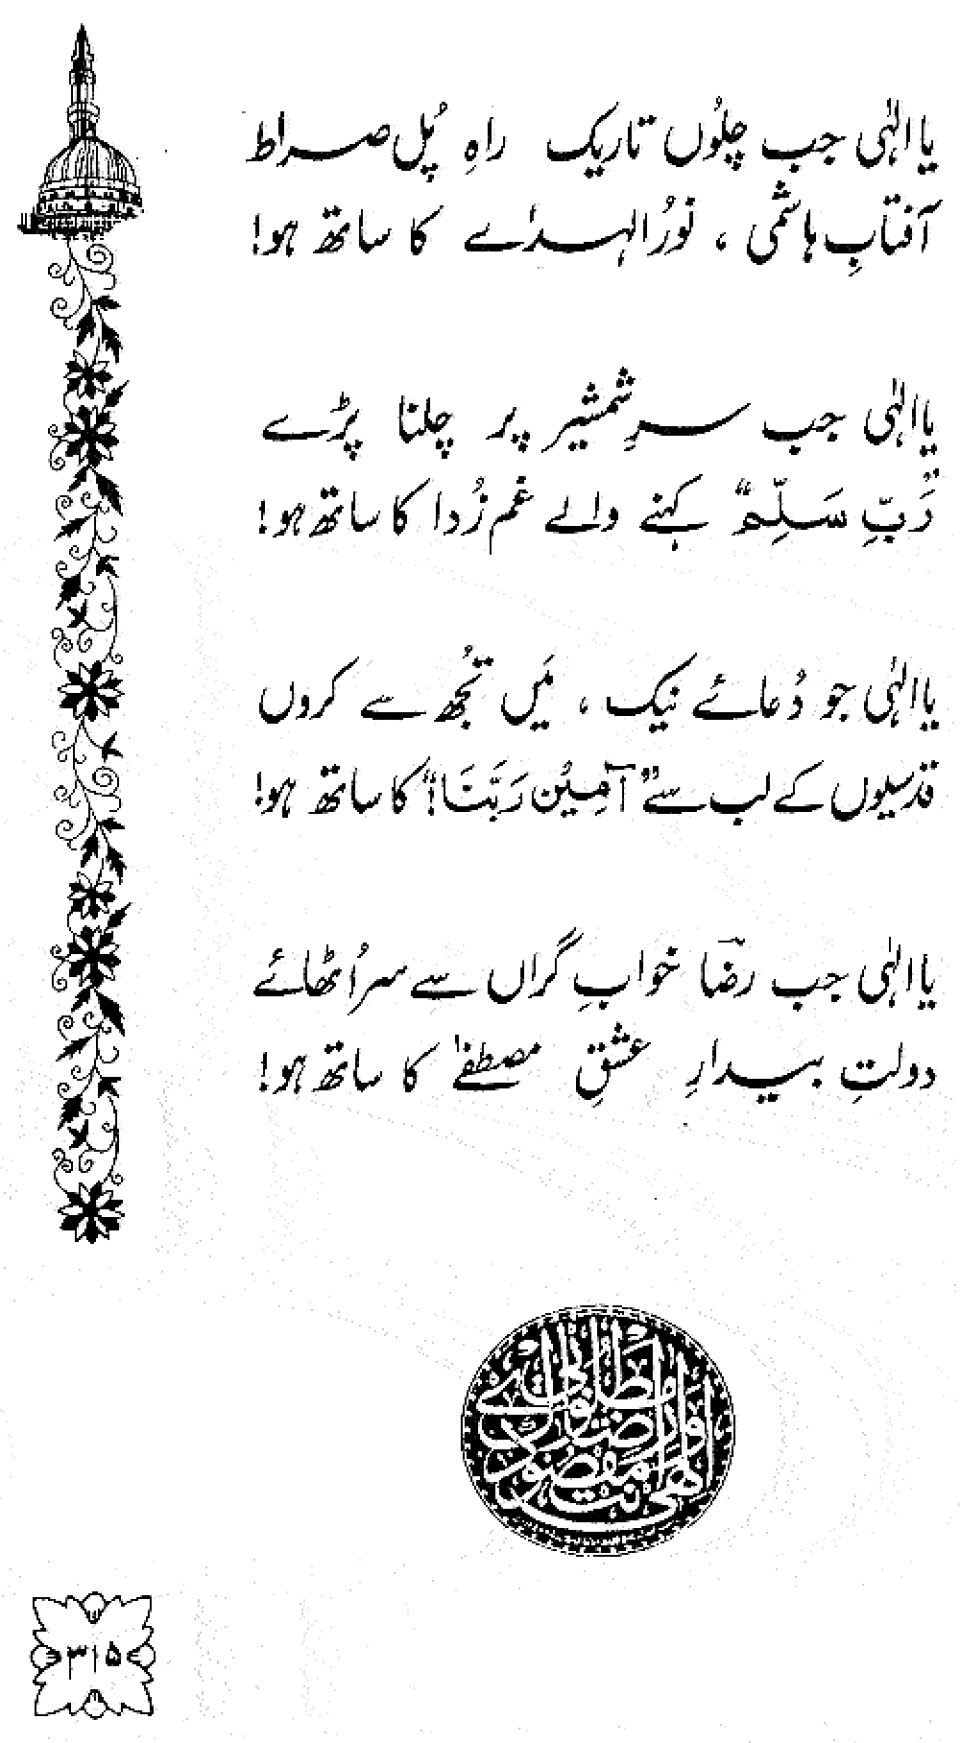 یا الٰہی جب چلُوں تاریک راہِ پُل صراط
آفتابِ ہاشمی ، نورُ الہدےٰ کا ساتھ ہو!
یا الٰہی جب سرِ شمشیر پر چلنا پڑے
”رَبِّ سَلِّمْ“ کہنے والے غم زُدا کا ساتھ ہو!
یا الٰہی جو دُعائے نیک ، مَیں تُجھ سے کروں
قدسیوں کے لب سے ”آمِیْن رَبَّنَا!“ کا ساتھ ہو!
یا الٰہی جب رضاؔ خوابِ گراں سے سر اُٹھائے
دولتِ بیدارِ عشقِ مصطفےٰ کا ساتھ ہو!
الٰهی انت مقصودی ورضاک مطلوبی
۳۱۵